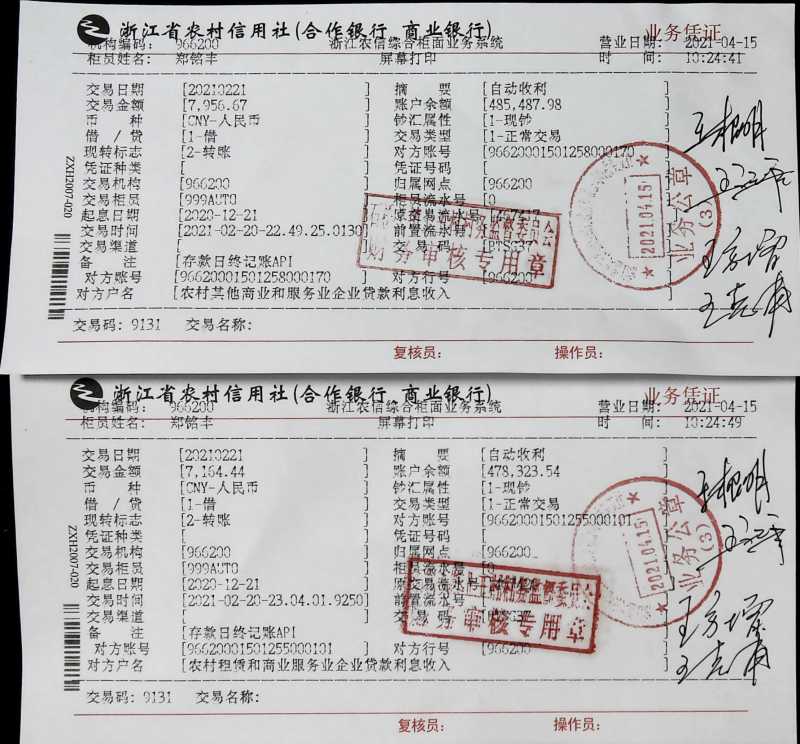 浙江省农村信用社(合作银行 商业银行) 业务凭证
机构编码： 966200 浙江农信综合柜面业务系统 营业日期： 2021-04-15
柜员姓名： 郑铭丰 屏幕打印 时 间： 10:24:41
交易日期 [20210221 ] 摘 要 [自动收利 ]
交易金额 [7,956.67 ] 账户余额 [485,487.98 ]
币 种 [CNY-人民币 ] 钞汇属性 [1-现钞 ]
借 / 贷 [1-借 ] 交易类型 [1-正常交易 ]
现转标志 [2-转账 ] 对方账号 [96620001501258000170
凭证种类 [ ] 凭证号码 [ ]
交易机构 [966200 ] 归属网点 [966200 ]
交易柜员 [999AUTO ] 柜员流水号 [0 ]
起息日期 [2020-12-21 ] 原交易流水号
交易时间 [2021-02-20-22.49.25.0130] 前置流水号
交易渠道 [ 交易码
备 注 [存款日终记账API
对方账号 [96620001501258000170 ] 对方行号 [966200 ]
对方户名 [农村其他商业和服务业企业贷款利息收入 ]
交易码：9131 交易名称：
复核员： 操作员：
ZXH2007-020
财务审核专用章
2021.04.15
业务公章
(3)
浙江省农村信用社(合作银行 商业银行) 业务凭证
机构编码： 966200 浙江农信综合柜面业务系统 营业日期： 2021-04-15
柜员姓名： 郑铭丰 屏幕打印 时 间： 10:24:49
交易日期 [20210221 ] 摘 要 [自动收利 ]
交易金额 [7,164.44 ] 账户余额 [478,323.54 ]
币 种 [CNY-人民币 ] 钞汇属性 [1-现钞 ]
借 / 贷 [1-借 ] 交易类型 [1-正常交易 ]
现转标志 [2-转账 ] 对方账号 [96620001501255000101
凭证种类 [ ] 凭证号码 [ ]
交易机构 [966200 ] 归属网点 [966200 ]
交易柜员 [999AUTO ] 柜员流水号
起息日期 [2020-12-21 ] 原交易流水号
交易时间 [2021-02-20-23.04.01.9250] 前置流水号
交易渠道 [
备 注 [存款日终记账API
对方账号 [96620001501255000101 ] 对方行号 [966200 ]
对方户名 [农村租赁和商业服务业企业贷款利息收入 ]
交易码：9131 交易名称：
复核员： 操作员：
ZXH2007-020
财务审核专用章
2021.04.15
业务公章
(3)